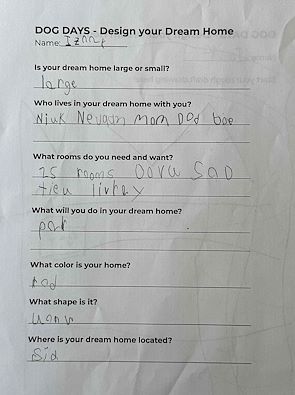 DOG DAYS - Design your Dream Home
Name:
Is your dream home large or small?
large
Who lives in your dream home with you?
Niuk Nevadn mom Dod
What rooms do you need and want?
25 rooms
What will you do in your dream home?
What color is your home?
What shape is it?
Where is your dream home located?
Sid